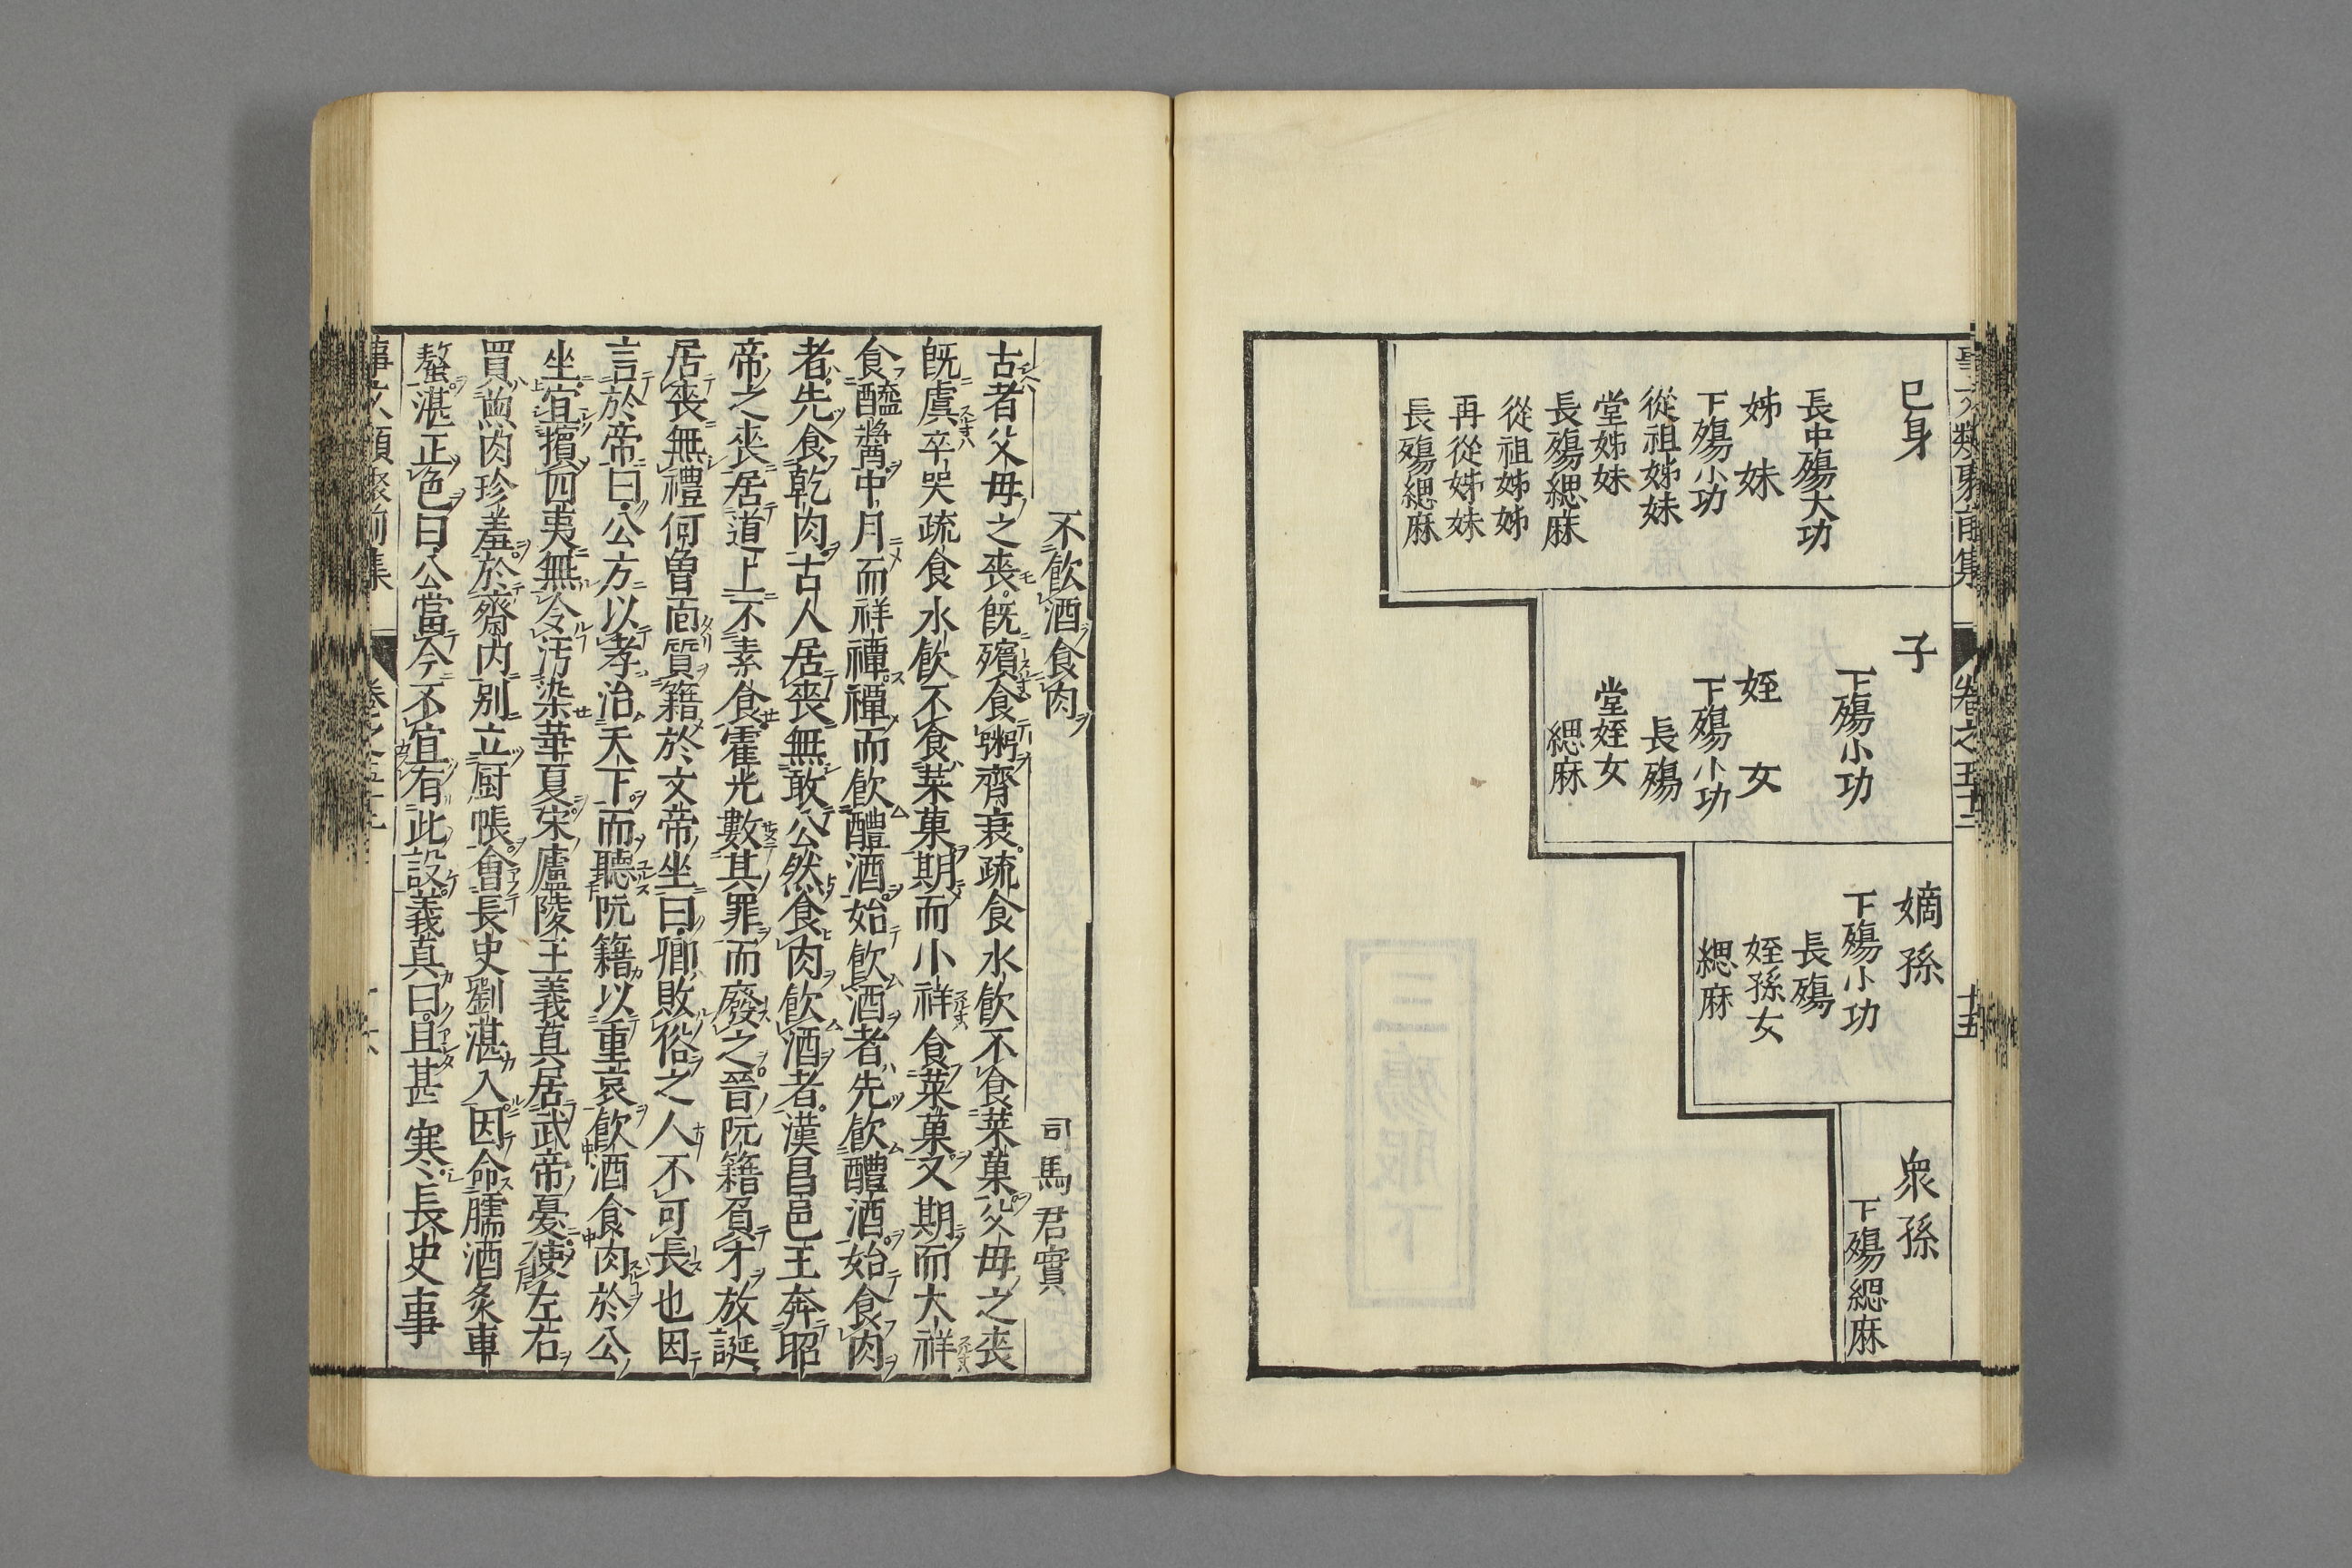 事文類聚前集 卷之五十二 十五
己身
長中殤大功
姊妹
下殤小功
從祖姊妹
堂姊妹
長殤緦麻
從祖姊姊
再從姊妹
長殤緦麻
子
下殤小功
姪女
下殤小功
長殤
堂姪女
緦麻
嫡孫
下殤小功
長殤
姪孫女
緦麻
衆孫
下殤緦麻
不飲酒食肉 司馬君實
古者父母之喪既殯食粥齊衰疏食水飲不食菜菓父母之喪
既虞卒哭疏食水飲不食菜菓期而小祥食菜菓又期而大祥
食醯醬中月而祥禫禫而飲醴酒始飲酒者先飲醴酒始食肉
者先食乾肉古人居喪無敢公然食肉飲酒者漢昌邑王奔昭
帝之喪居道上不素食霍光數其罪而廢之晉阮籍負才放誕
居喪無禮何曾面質籍於文帝坐曰卿敗俗之人不可長也因
言於帝曰公方以孝治天下而聽阮籍以重哀飲酒食肉於公
坐宜擯四夷無令汚染華夏宋廬陵王義真居武帝憂使左右
買魚肉珍羞於齋内別立厨帳會長史劉湛入因命臑酒炙車
螯湛正色曰公當今不宜有此設義真曰旦甚寒長史事
事文類聚前集